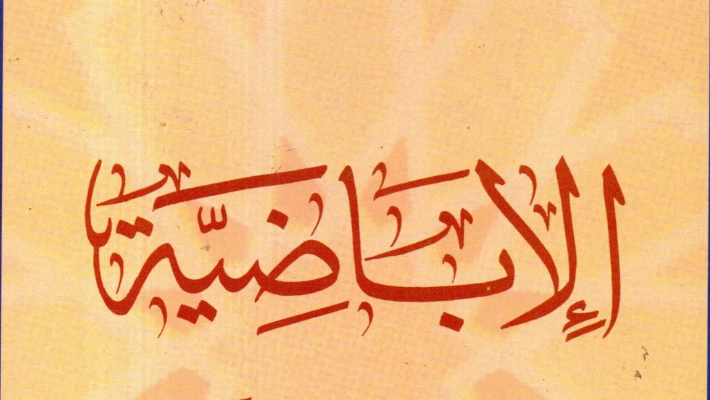 الإِبَاضِيَّة